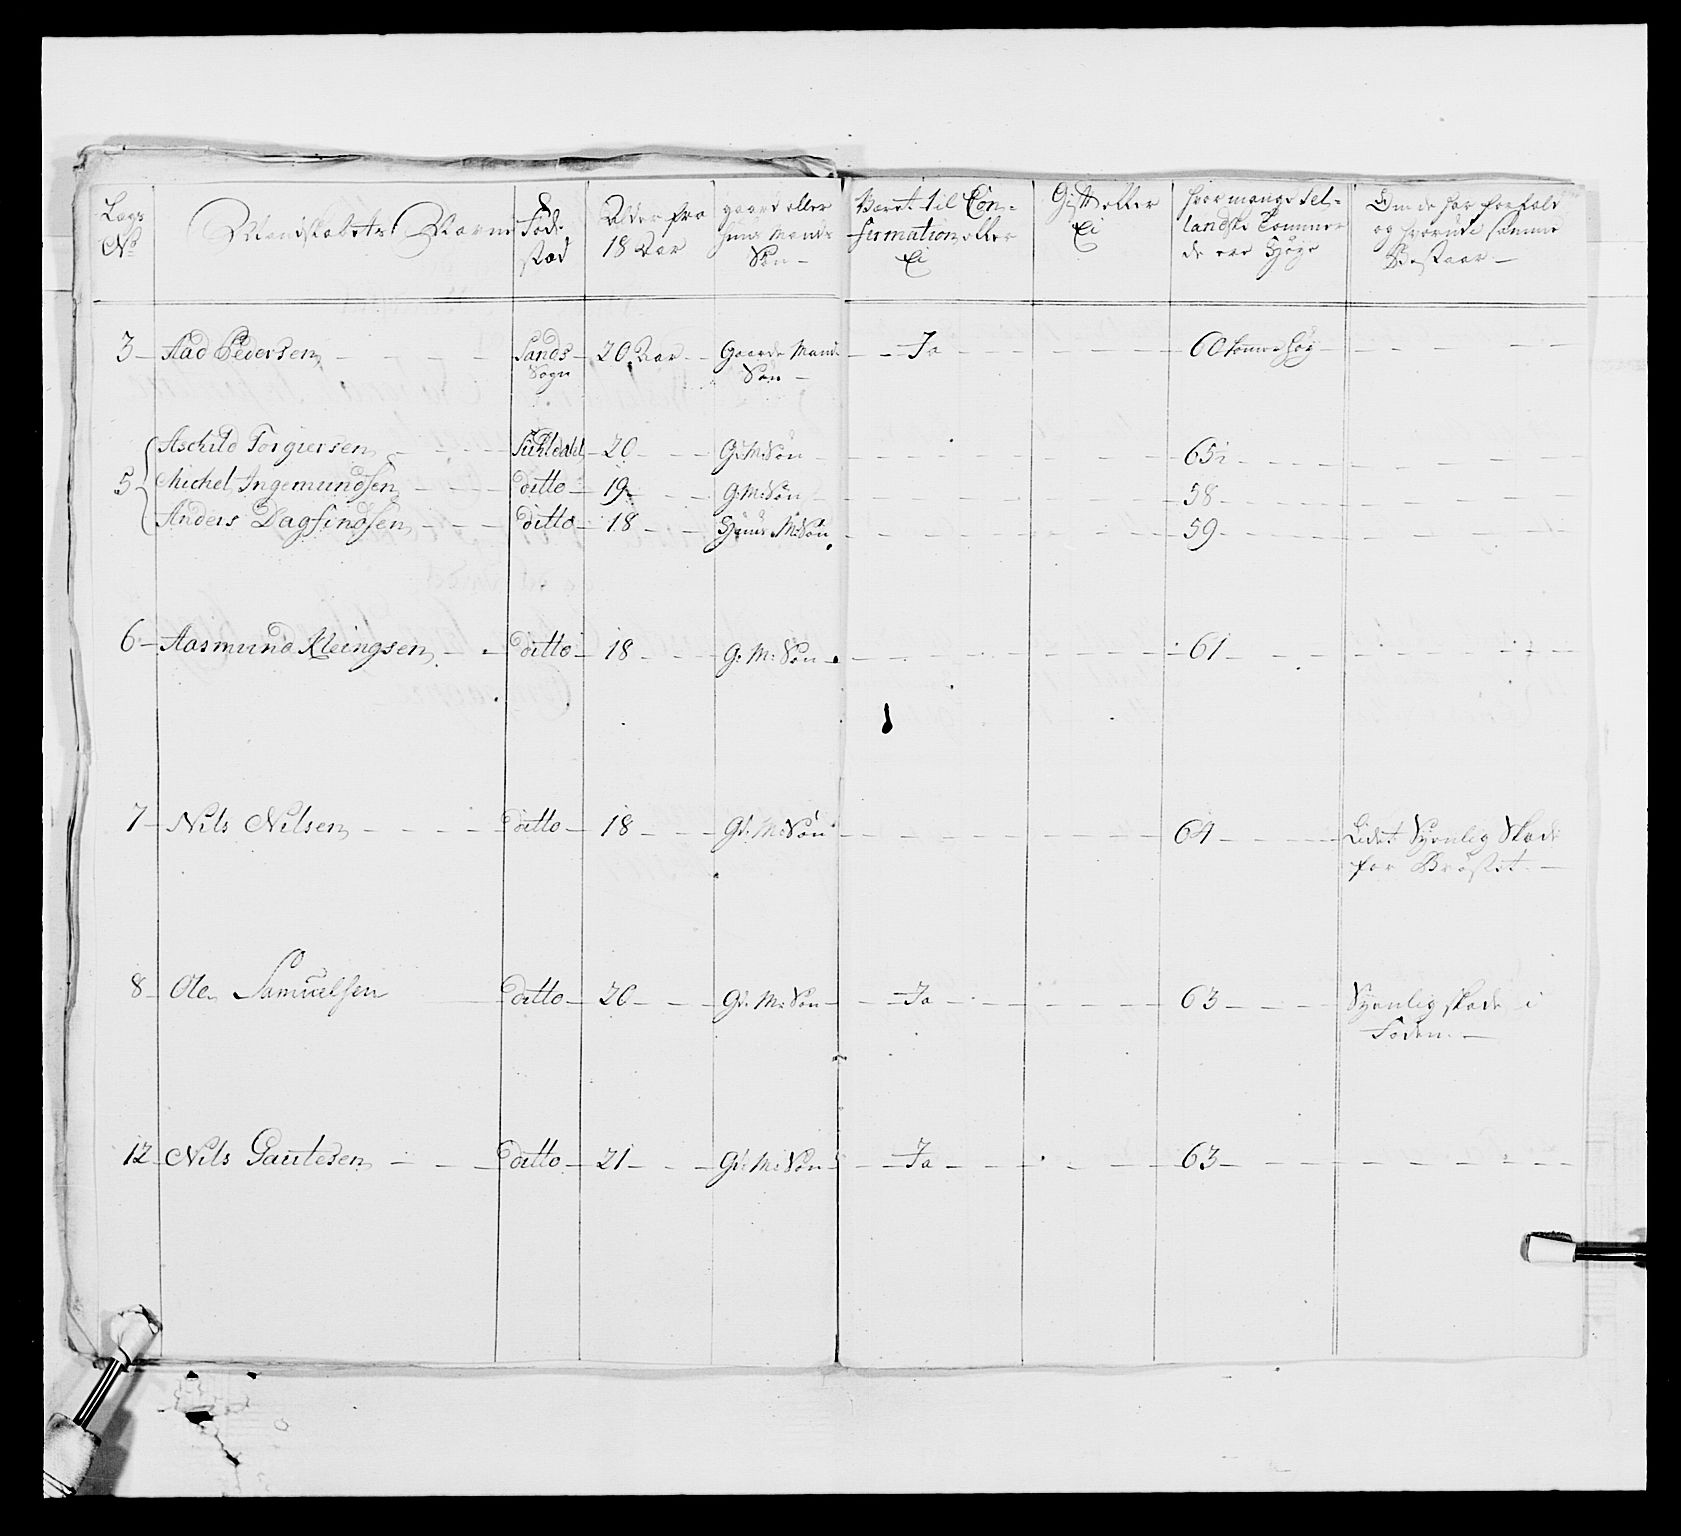 Legs No | Mandskabets Navne | Føde stæd | Alder fra 18 Aar | gaard eller huus Mands Søn | Været til Confirmation eller Ei | Gift eller Ei | hvor mange Sellandske Tommer de ere Høye | Om de har forfald og hvorudi samme Bestaar
3 Aad Pedersen Sands Sogn 20 Aar Gaards Mands Søn Ja 60 tommer høy
5 Aschild Torgiersen Suhledahl 20 G: M: Søn 65½
Michel Ingemundsen ditto 19 G: M: Søn 58
Anders Dagfindsen ditto 18 Huus M: Søn 59
6 Aasmund Kleingsen ditto 18 G: M: Søn 61
7 Nils Nilsen ditto 18 Gd: M: Søn 64 Lidet Synlig Skade
for Brøstet
8 Ole Samuelsen ditto 20 Gd: M: Søn Ja 63 Synlig skade i
Foden
12 Nils Gautesen ditto 21 Gd: M: Søn Ja 63